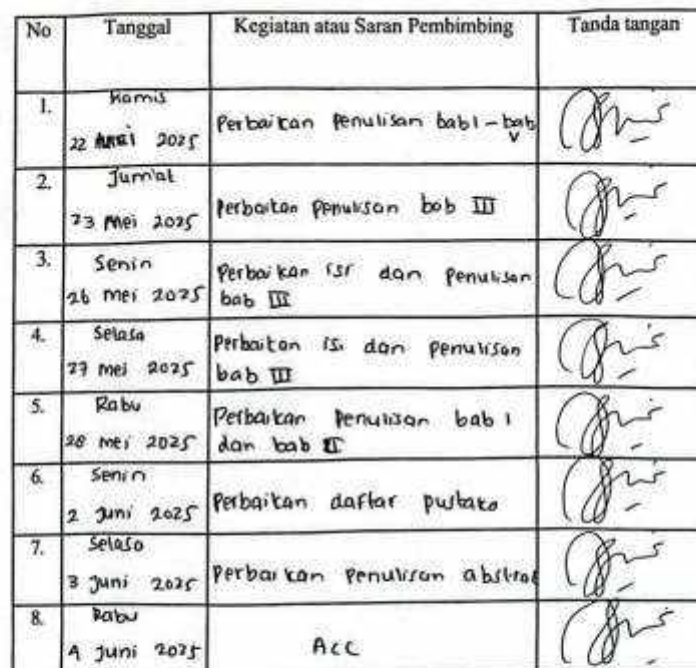 No Tanggal Kegiatan atau Saran Pembimbing Tanda tangan
1. Kamis
22 Mei 2025 Perbaikan Penulisan bab I - bab V
2. Jum'at
23 Mei 2025 Perbaikan Penulisan bab III
3. Senin
26 mei 2025 Perbaikan isi dan Penulisan
bab III
4. Selasa
27 mei 2025 Perbaikan isi dan Penulisan
bab III
5. Rabu
28 mei 2025 Perbaikan Penulisan bab I
dan bab II
6. Senin
2 Juni 2025 Perbaikan daftar pustaka
7. Selasa
3 Juni 2025 Perbaikan Penulisan abstrak
8. Rabu
4 Juni 2025 Acc